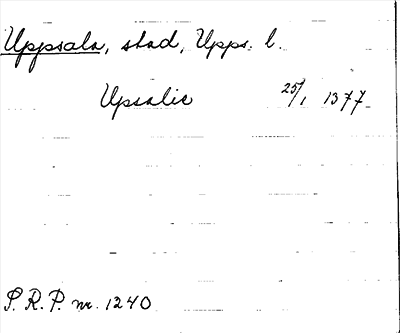 Uppsala, stad, Upps. l.
Upsalie 25/1 1377
S. R. P. nr. 1240